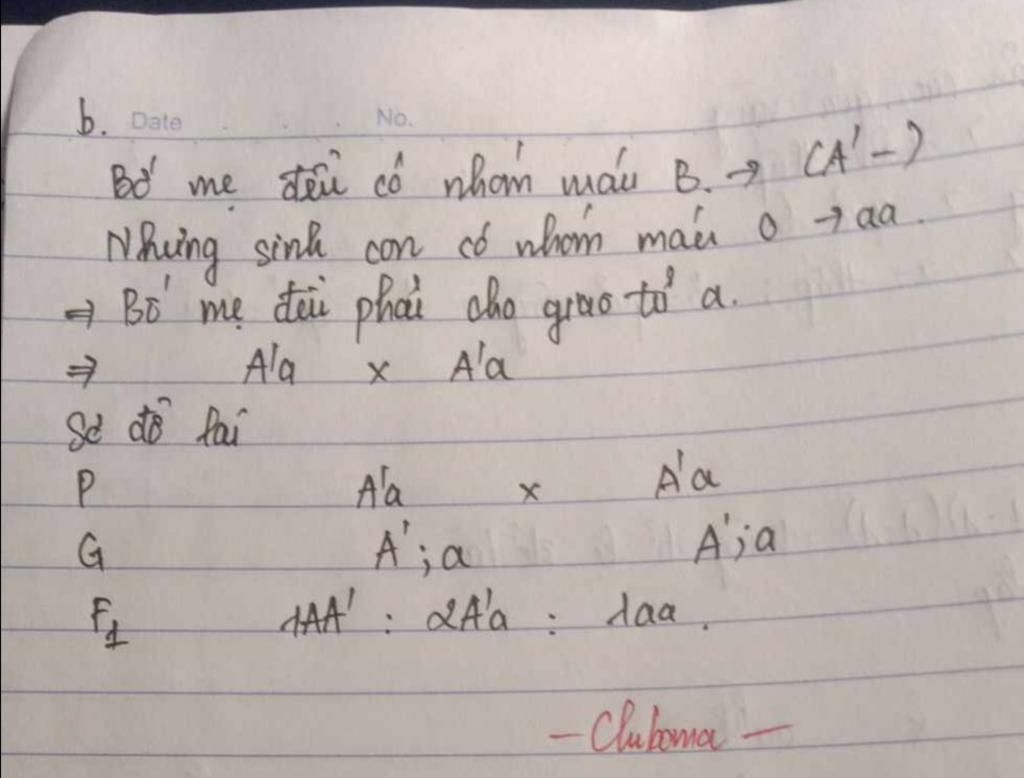 b. Date No.
Bố mẹ đều có nhóm máu B. → (A' -)
Nhưng sinh con có nhóm máu O → aa.
⇒ Bố mẹ đều phải cho giao tử a.
⇒ A'a x A'a
Sơ đồ lai
P A'a x A'a
G A' ; a A' ; a
F1 1AA' : 2A'a : 1aa.
- Cluboma -